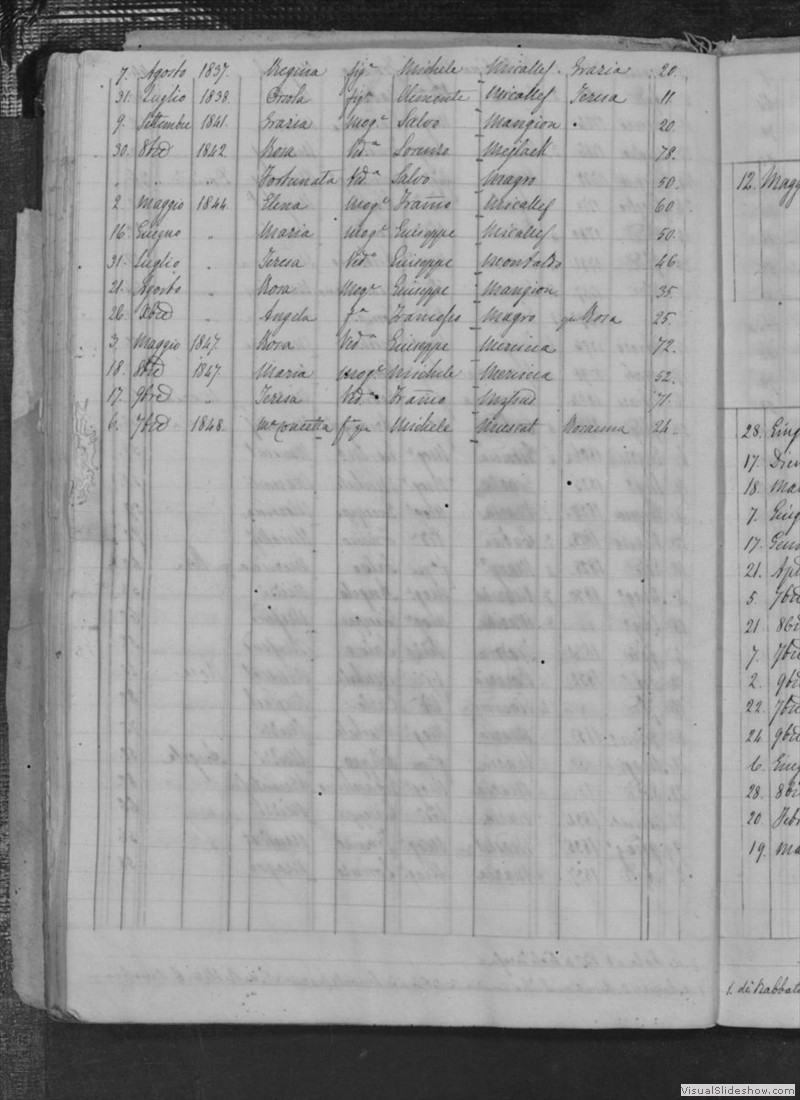 7. Agosto 1837. Regina figª Michele Micallef Grazia 20.
31. Luglio 1838. Orsola figª Clemente Micallef Teresa 11.
9. Settembre 1841. Grazia mogᵉ Salvo Mangion 20.
30. 8bre 1842. Rosa Vedª Lorenzo Mejlack 78.
" " " Fortunata Vedª Salvo Magro 50.
2. Maggio 1844. Elena mogᵉ Micallef 60.
16. Giugno " Maria mogᵉ Giuseppe Micallef 50.
31. Luglio " Teresa Vedª Giuseppe Montaldo 46.
21. Agosto " Rosa Mogᵉ Giuseppe Mangion 35.
26. Angela fª Francesco Magro Rosa 25.
3. Maggio 1847. Rosa Vedª Giuseppe Mercieca 72.
18. 8bre 1847. Maria mogᵉ Michele Mercieca 52.
17. 9bre " Teresa Vedª 71.
6. 7bre 1848. Mª Concetta Michele Muscat Rosanna 24.
12. Magg
28. Giug
17.
18. Ma
7. Giug
17. Genn
21. Apr
5. 7bre
21. 8br
7. 9br
2. 9br
22. 7bre
24. 9bre
6. Giug
28. 8br
20. Febr
19. Ma
1. di Rabbato
VisualSlideshow.com